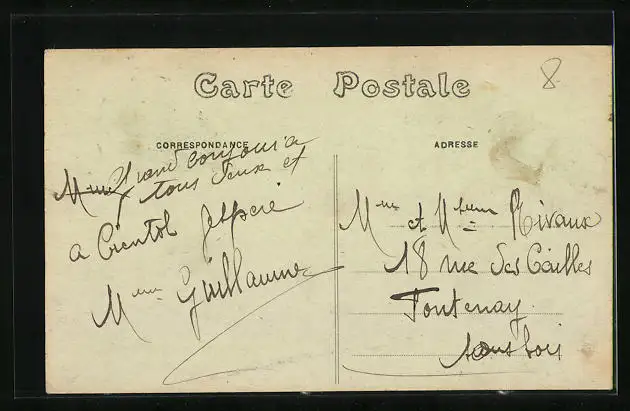 Carte Postale
8
CORRESPONDANCE
grand bonjour a
tous deux et
a Bientot Jespere
Mme Guillaume
ADRESSE
Mme et Msieur Rivaux
18 rue des Cailles
Fontenay
sous bois